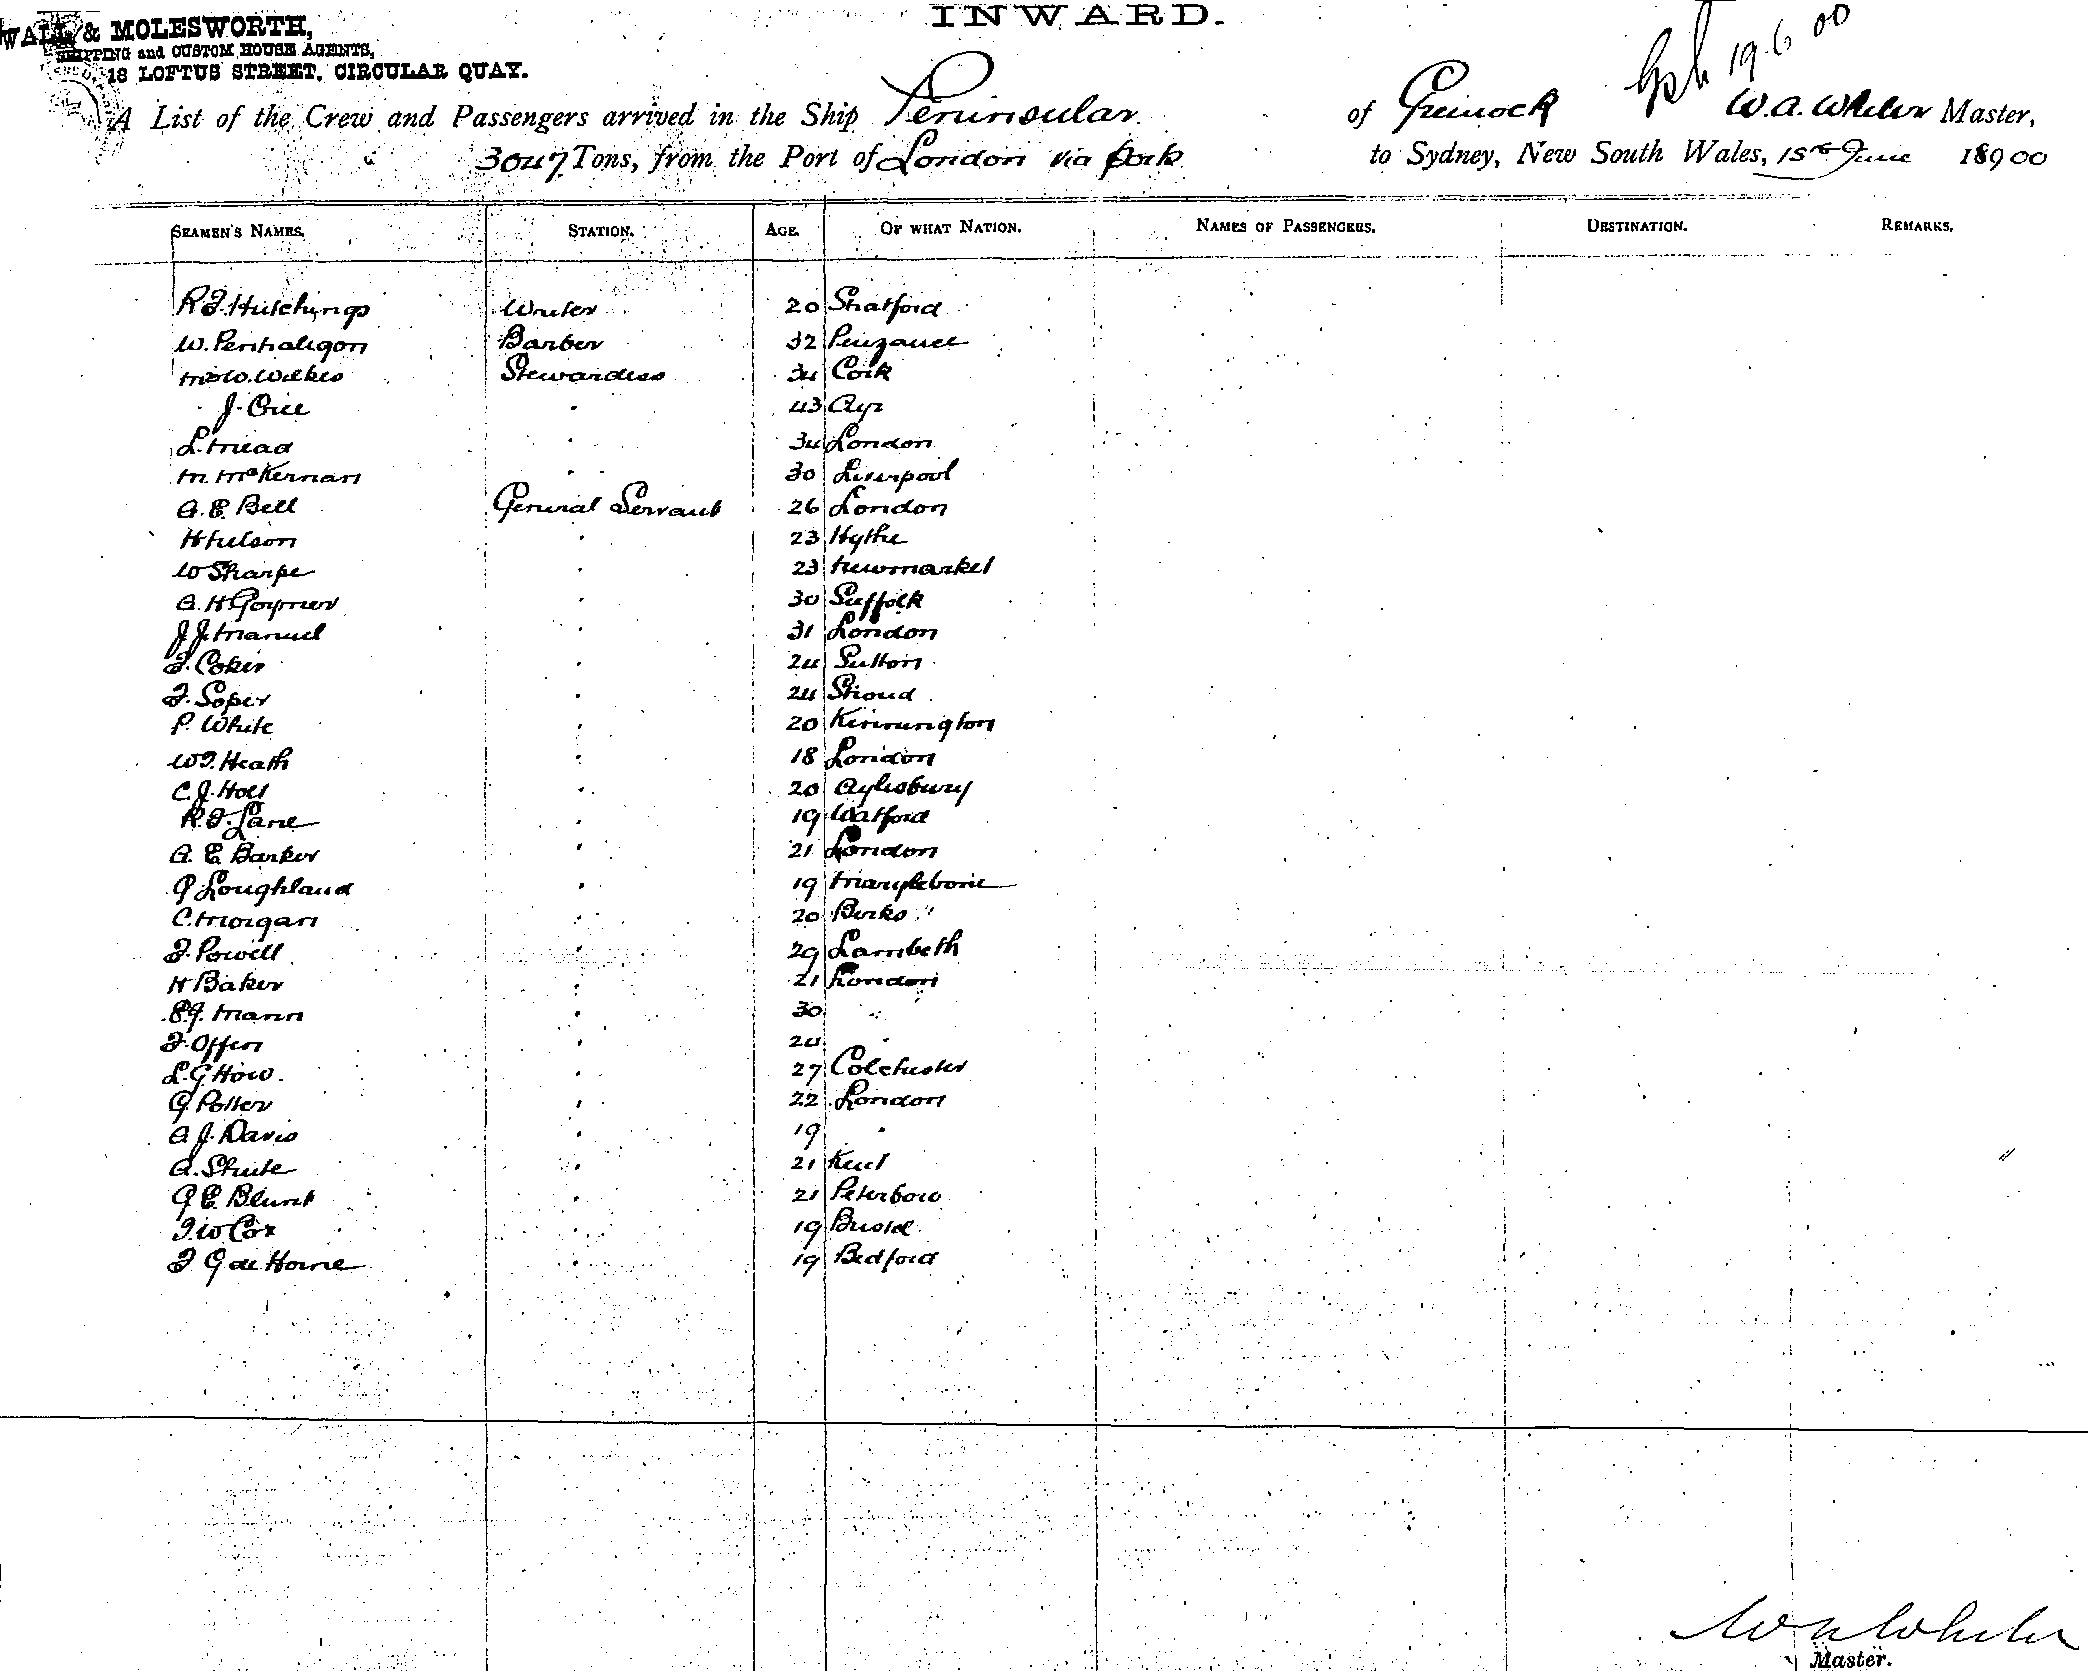 INWARD.
WALL & MOLESWORTH,
SHIPPING and CUSTOM HOUSE AGENTS,
18 LOFTUS STREET, CIRCULAR QUAY.
19.6.00
A List of the Crew and Passengers arrived in the Ship Peninsular of Greenock W.A. Wheler Master,
3047 Tons, from the Port of London via to Sydney, New South Wales, 15th June 18900
SEAMEN'S NAMES. STATION. AGE. OF WHAT NATION. NAMES OF PASSENGERS. DESTINATION. REMARKS.
R F Hutchings Writer 20 Stratford
W. Penhaligon Barber 32 Penzance
Mrs W. Wilkes Stewardess 34 Cork
J. Orr 43 Ayr
L. Mead " 34 London
M. McKernan " 30 Liverpool
A. E. Bell General Servant 26 London
H Nelson " 23 Hythe
W Sharpe " 23 Newmarket
A. H Joyner " 30 Suffolk
J J. Manuel " 31 London
F. Coker " 24 Sutton
F. Soper " 24 Stroud
P. White " 20 Kennington
W F. Heath " 18 London
C. J. Holt " 20 Aylesbury
R. F. Lane " 19 Watford
A. E Barker " 21 London
G Loughland " 19 Marylebone
C. Morgan " 20 Berks
F. Powell " 29 Lambeth
H Baker " 21 London
E. J. Mann " 30 "
F. Offen " 24 "
L. G How. " 27 Colchester
G Potter " 22 London
A J. Davis " 19 "
A. Shute " 21 Kent
G E Blunt " 21 Peterboro
F W Cox " 19 Bristol
F G de Horne " 19 Bedford
W A Wheler
Master.